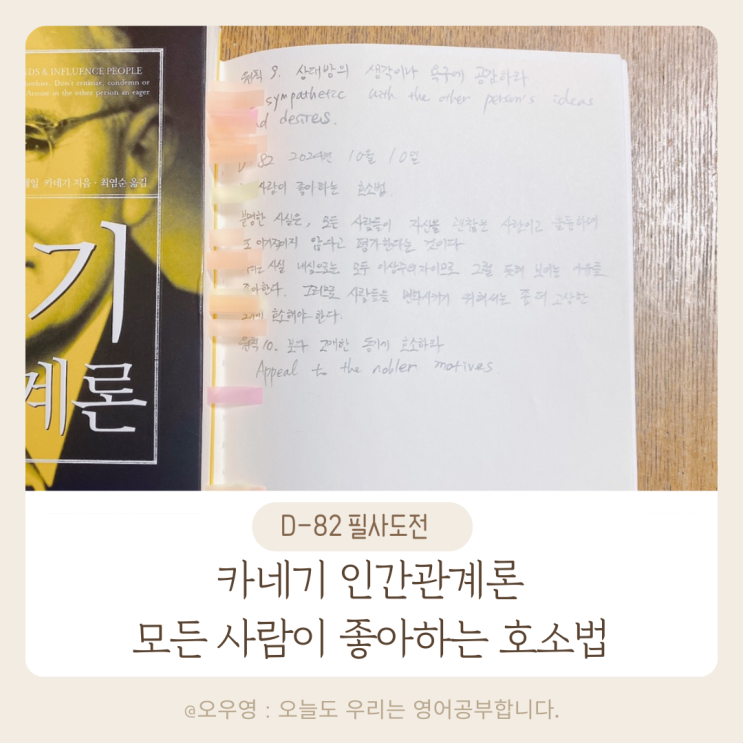 DS & INFLUENCE PEOPLE
Don't criticize, condemn or
the other person an eager
카네기 지음 · 최염순 옮김
기
계론
원칙 9. 상대방의 생각이나 욕구에 공감하라
sympathetic with the other person's ideas
desires.
82 2024년 10월 10일
사람이 좋아하는 호소법
분명한 사실은, 모든 사람들이 자신을 괜찮은 사람이고
평가한다는 것이다
사실 내심으로는 모두 이상주의자이므로 그럴 듯해 보이는 이유를
좋아한다. 그러므로 사람들을 변화시키기 위해서는 좀 더 고상한
호소해야 한다.
원칙 10. 보다 고매한 동기에 호소하라
Appeal to the nobler motives.
D-82 필사도전
카네기 인간관계론
모든 사람이 좋아하는 호소법
@오우영 : 오늘도 우리는 영어공부합니다.